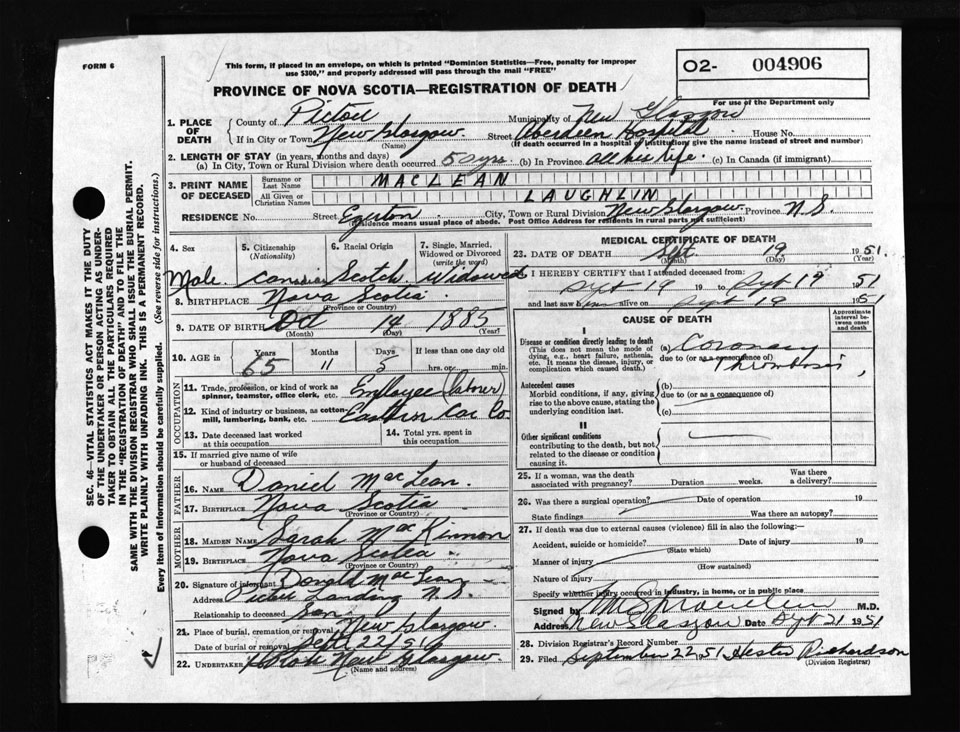 FORM 6
This form, if placed in an envelope, on which is printed "Dominion Statistics—Free, penalty for improper
use $300," and properly addressed will pass through the mail "FREE"
O2- 004906
PROVINCE OF NOVA SCOTIA—REGISTRATION OF DEATH
For use of the Department only
1. PLACE OF DEATH
County of Pictou Municipality of New Glasgow
If in City or Town New Glasgow. Street Aberdeen Hospital House No.
(Name) (If death occurred in a hospital or institution, give the name instead of street and number)
2. LENGTH OF STAY (in years, months and days)
(a) In City, Town or Rural Division where death occurred 50 yrs. (b) In Province all his life. (c) In Canada (if immigrant)
3. PRINT NAME OF DECEASED
Surname or Last Name MACLEAN
All Given or Christian Names LAUGHLIN
RESIDENCE No. Street Egerton City, Town or Rural Division New Glasgow Province N.S.
(Residence means usual place of abode. Post Office Address for residents in rural parts not sufficient)
4. Sex
Male
5. Citizenship
(Nationality)
6. Racial Origin
Scotch
7. Single, Married,
Widowed or Divorced
(write the word)
Widowed
8. BIRTHPLACE Nova Scotia
(Province or Country)
9. DATE OF BIRTH Oct 14 1885
(Month) (Day) (Year)
10. AGE in Years Months Days If less than one day old
65 11 5 hrs. or min.
OCCUPATION
11. Trade, profession, or kind of work as
spinner, teamster, office clerk, etc. Employee (Labner)
12. Kind of industry or business, as cotton-
mill, lumbering, bank, etc. Eastern Car Co
13. Date deceased last worked
at this occupation
14. Total yrs. spent in
this occupation
15. If married give name of wife
or husband of deceased
FATHER
16. NAME Daniel MacLean
17. BIRTHPLACE Nova Scotia
(Province or Country)
MOTHER
18. MAIDEN NAME Sarah MacKinnon
19. BIRTHPLACE Nova Scotia
(Province or Country)
20. Signature of informant Donald MacLean
Address Pictou Landing N.S.
Relationship to deceased Son
21. Place of burial, cremation or removal New Glasgow.
Date of burial or removal Sept 22/51
22. UNDERTAKER New Glasgow.
(Name and address)
MEDICAL CERTIFICATE OF DEATH
23. DATE OF DEATH Sept. 19 1951
(Month) (Day) (Year)
I HEREBY CERTIFY that I attended deceased from
Sept 19 19 to Sept 19 1951
and last saw him alive on Sept 19 1951
CAUSE OF DEATH
Approximate interval between onset and death
I
Disease or condition directly leading to death
(This does not mean the mode of
dying, e.g., heart failure, asthenia,
etc. It means the disease, injury, or
complication which caused death.)
(a) Coronary
due to (or as a consequence of)
Thrombosis
Antecedent causes
Morbid conditions, if any, giving
rise to the above cause, stating the
underlying condition last.
(b)
due to (or as a consequence of)
(c)
II
Other significant conditions
contributing to the death, but not
related to the disease or condition
causing it.
25. If a woman, was the death
associated with pregnancy? Duration weeks. Was there
a delivery?
26. Was there a surgical operation? Date of operation 19
State findings Was there an autopsy?
27. If death was due to external causes (violence) fill in also the following:—
Accident, suicide or homicide? Date of injury 19
(State which)
Manner of injury
(How sustained)
Nature of injury
Specify whether injury occurred in industry, in home, or in public place
Signed by M.D.
Address New Glasgow Date Sept 21 1951
28. Division Registrar's Record Number
29. Filed September 22, 51 Hester Richardson
(Division Registrar)
SEC. 46 VITAL STATISTICS ACT MAKES IT THE DUTY
OF THE UNDERTAKER OR PERSON ACTING AS UNDER-
TAKER TO OBTAIN ALL THE PARTICULARS REQUIRED
IN THE "REGISTRATION OF DEATH" AND TO FILE THE
SAME WITH THE DIVISION REGISTRAR WHO SHALL ISSUE THE BURIAL PERMIT.
WRITE PLAINLY WITH UNFADING INK. THIS IS A PERMANENT RECORD.
Every item of Information should be carefully supplied. (See reverse side for instructions.)